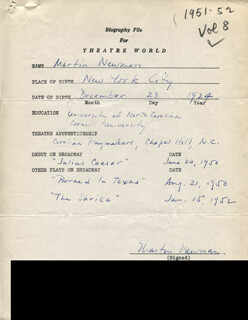 1951-52
Vol 8
Biography File
For
THEATRE WORLD
NAME Martin Newman
PLACE OF BIRTH New York City
DATE OF BIRTH December 23 1924
Month Day Year
EDUCATION University of North Carolina
Cornell University
THEATRE APPRENTICESHIP
Carolina Playmakers, Chapel Hill, N.C.
DEBUT ON BROADWAY DATE
"Julius Caesar" June 20, 1950
OTHER PLAYS ON BROADWAY DATE
"Borned In Texas" Aug. 21, 1950
"The Shrike" Jan. 15, 1952
Martin Newman
(Signed)